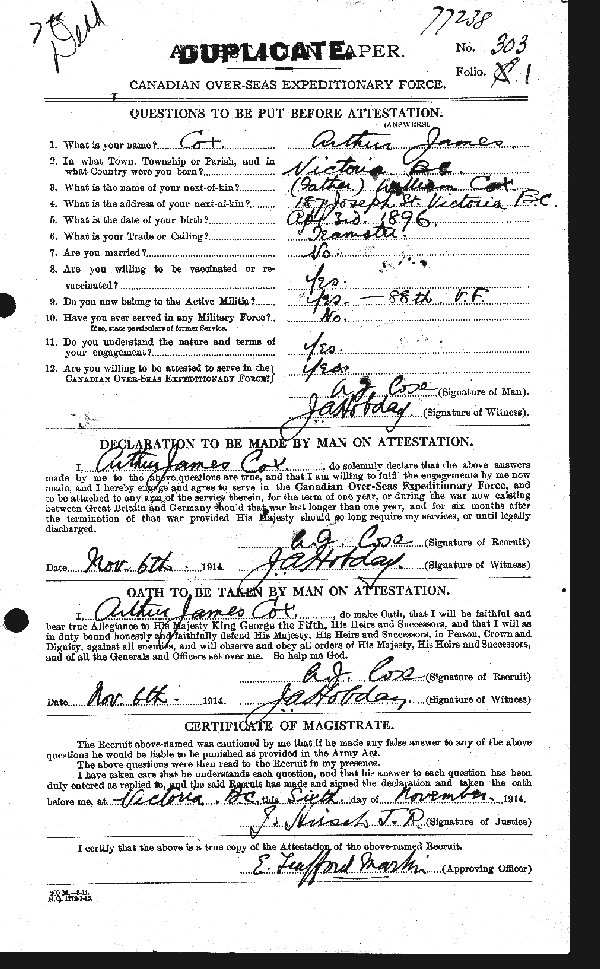 77238
DUPLICATE.
ATTESTATION PAPER.
No. 303
Folio. 1
CANADIAN OVER-SEAS EXPEDITIONARY FORCE.
QUESTIONS TO BE PUT BEFORE ATTESTATION.
(ANSWERS).
1. What is your name? Cox Arthur James
2. In what Town, Township or Parish, and in
what Country were you born? Victoria B.C.
3. What is the name of your next-of-kin? (Father) William Cox
4. What is the address of your next-of-kin? 187 Joseph St. Victoria B.C.
5. What is the date of your birth? 3rd. 1896.
6. What is your Trade or Calling? Teamster.
7. Are you married? No.
8. Are you willing to be vaccinated or re-
vaccinated? Yes.
9. Do you now belong to the Active Militia? Yes. — 88th V.F.
10. Have you ever served in any Military Force? No.
If so, state particulars of former Service.
11. Do you understand the nature and terms of
your engagement? Yes.
12. Are you willing to be attested to serve in the
CANADIAN OVER-SEAS EXPEDITIONARY FORCE? Yes.
A J Cox (Signature of Man).
J A Hobday (Signature of Witness).
DECLARATION TO BE MADE BY MAN ON ATTESTATION.
I, Arthur James Cox, do solemnly declare that the above answers
made by me to the above questions are true, and that I am willing to fulfil the engagements by me now
made, and I hereby engage and agree to serve in the Canadian Over-Seas Expeditionary Force, and
to be attached to any arm of the service therein, for the term of one year, or during the war now existing
between Great Britain and Germany should that war last longer than one year, and for six months after
the termination of that war provided His Majesty should so long require my services, or until legally
discharged.
A. J. Cox (Signature of Recruit)
Date Nov. 6th 1914. J A Hobday. (Signature of Witness)
OATH TO BE TAKEN BY MAN ON ATTESTATION.
I, Arthur James Cox, do make Oath, that I will be faithful and
bear true Allegiance to His Majesty King George the Fifth, His Heirs and Successors, and that I will as
in duty bound honestly and faithfully defend His Majesty, His Heirs and Successors, in Person, Crown and
Dignity, against all enemies, and will observe and obey all orders of His Majesty, His Heirs and Successors,
and of all the Generals and Officers set over me. So help me God.
A. J. Cox (Signature of Recruit)
Date Nov. 6th - 1914. J A Hobday. (Signature of Witness)
CERTIFICATE OF MAGISTRATE.
The Recruit above-named was cautioned by me that if he made any false answer to any of the above
questions he would be liable to be punished as provided in the Army Act.
The above questions were then read to the Recruit in my presence.
I have taken care that he understands each question, and that his answer to each question has been
duly entered as replied to, and the said Recruit has made and signed the declaration and taken the oath
before me, at Victoria. B.C. this Sixth day of November 1914.
(Signature of Justice)
I certify that the above is a true copy of the Attestation of the above-named Recruit.
E. Trafford Martin (Approving Officer)